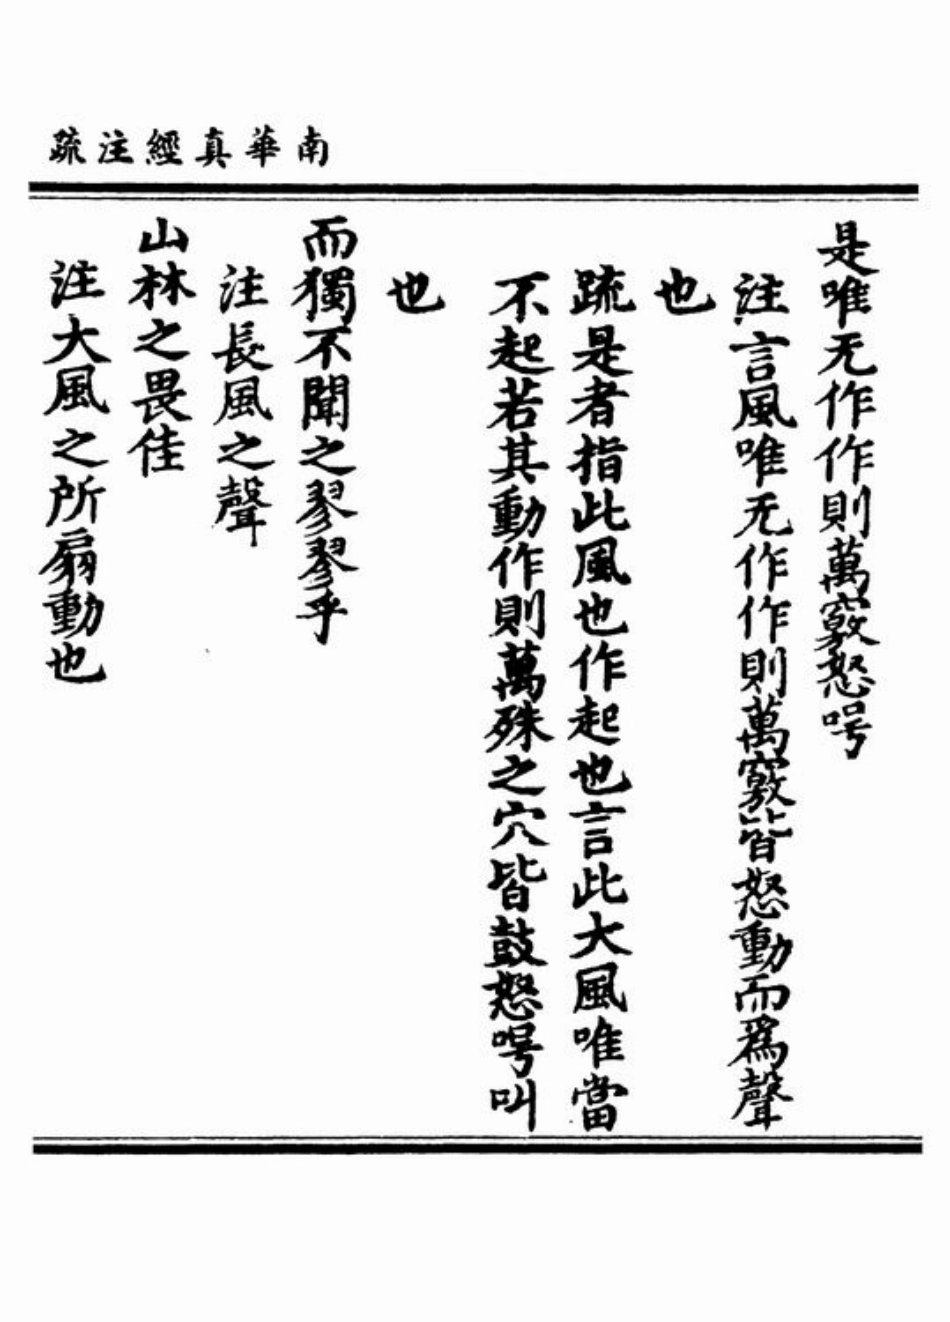 南華真經注疏
是唯无作作則萬竅怒呺
注言風唯无作作則萬竅皆怒動而爲聲
也
疏是者指此風也作起也言此大風唯當
不起若其動作則萬殊之穴皆鼓怒呺叫
也
而獨不聞之翏翏乎
注長風之聲
山林之畏佳
注大風之所扇動也